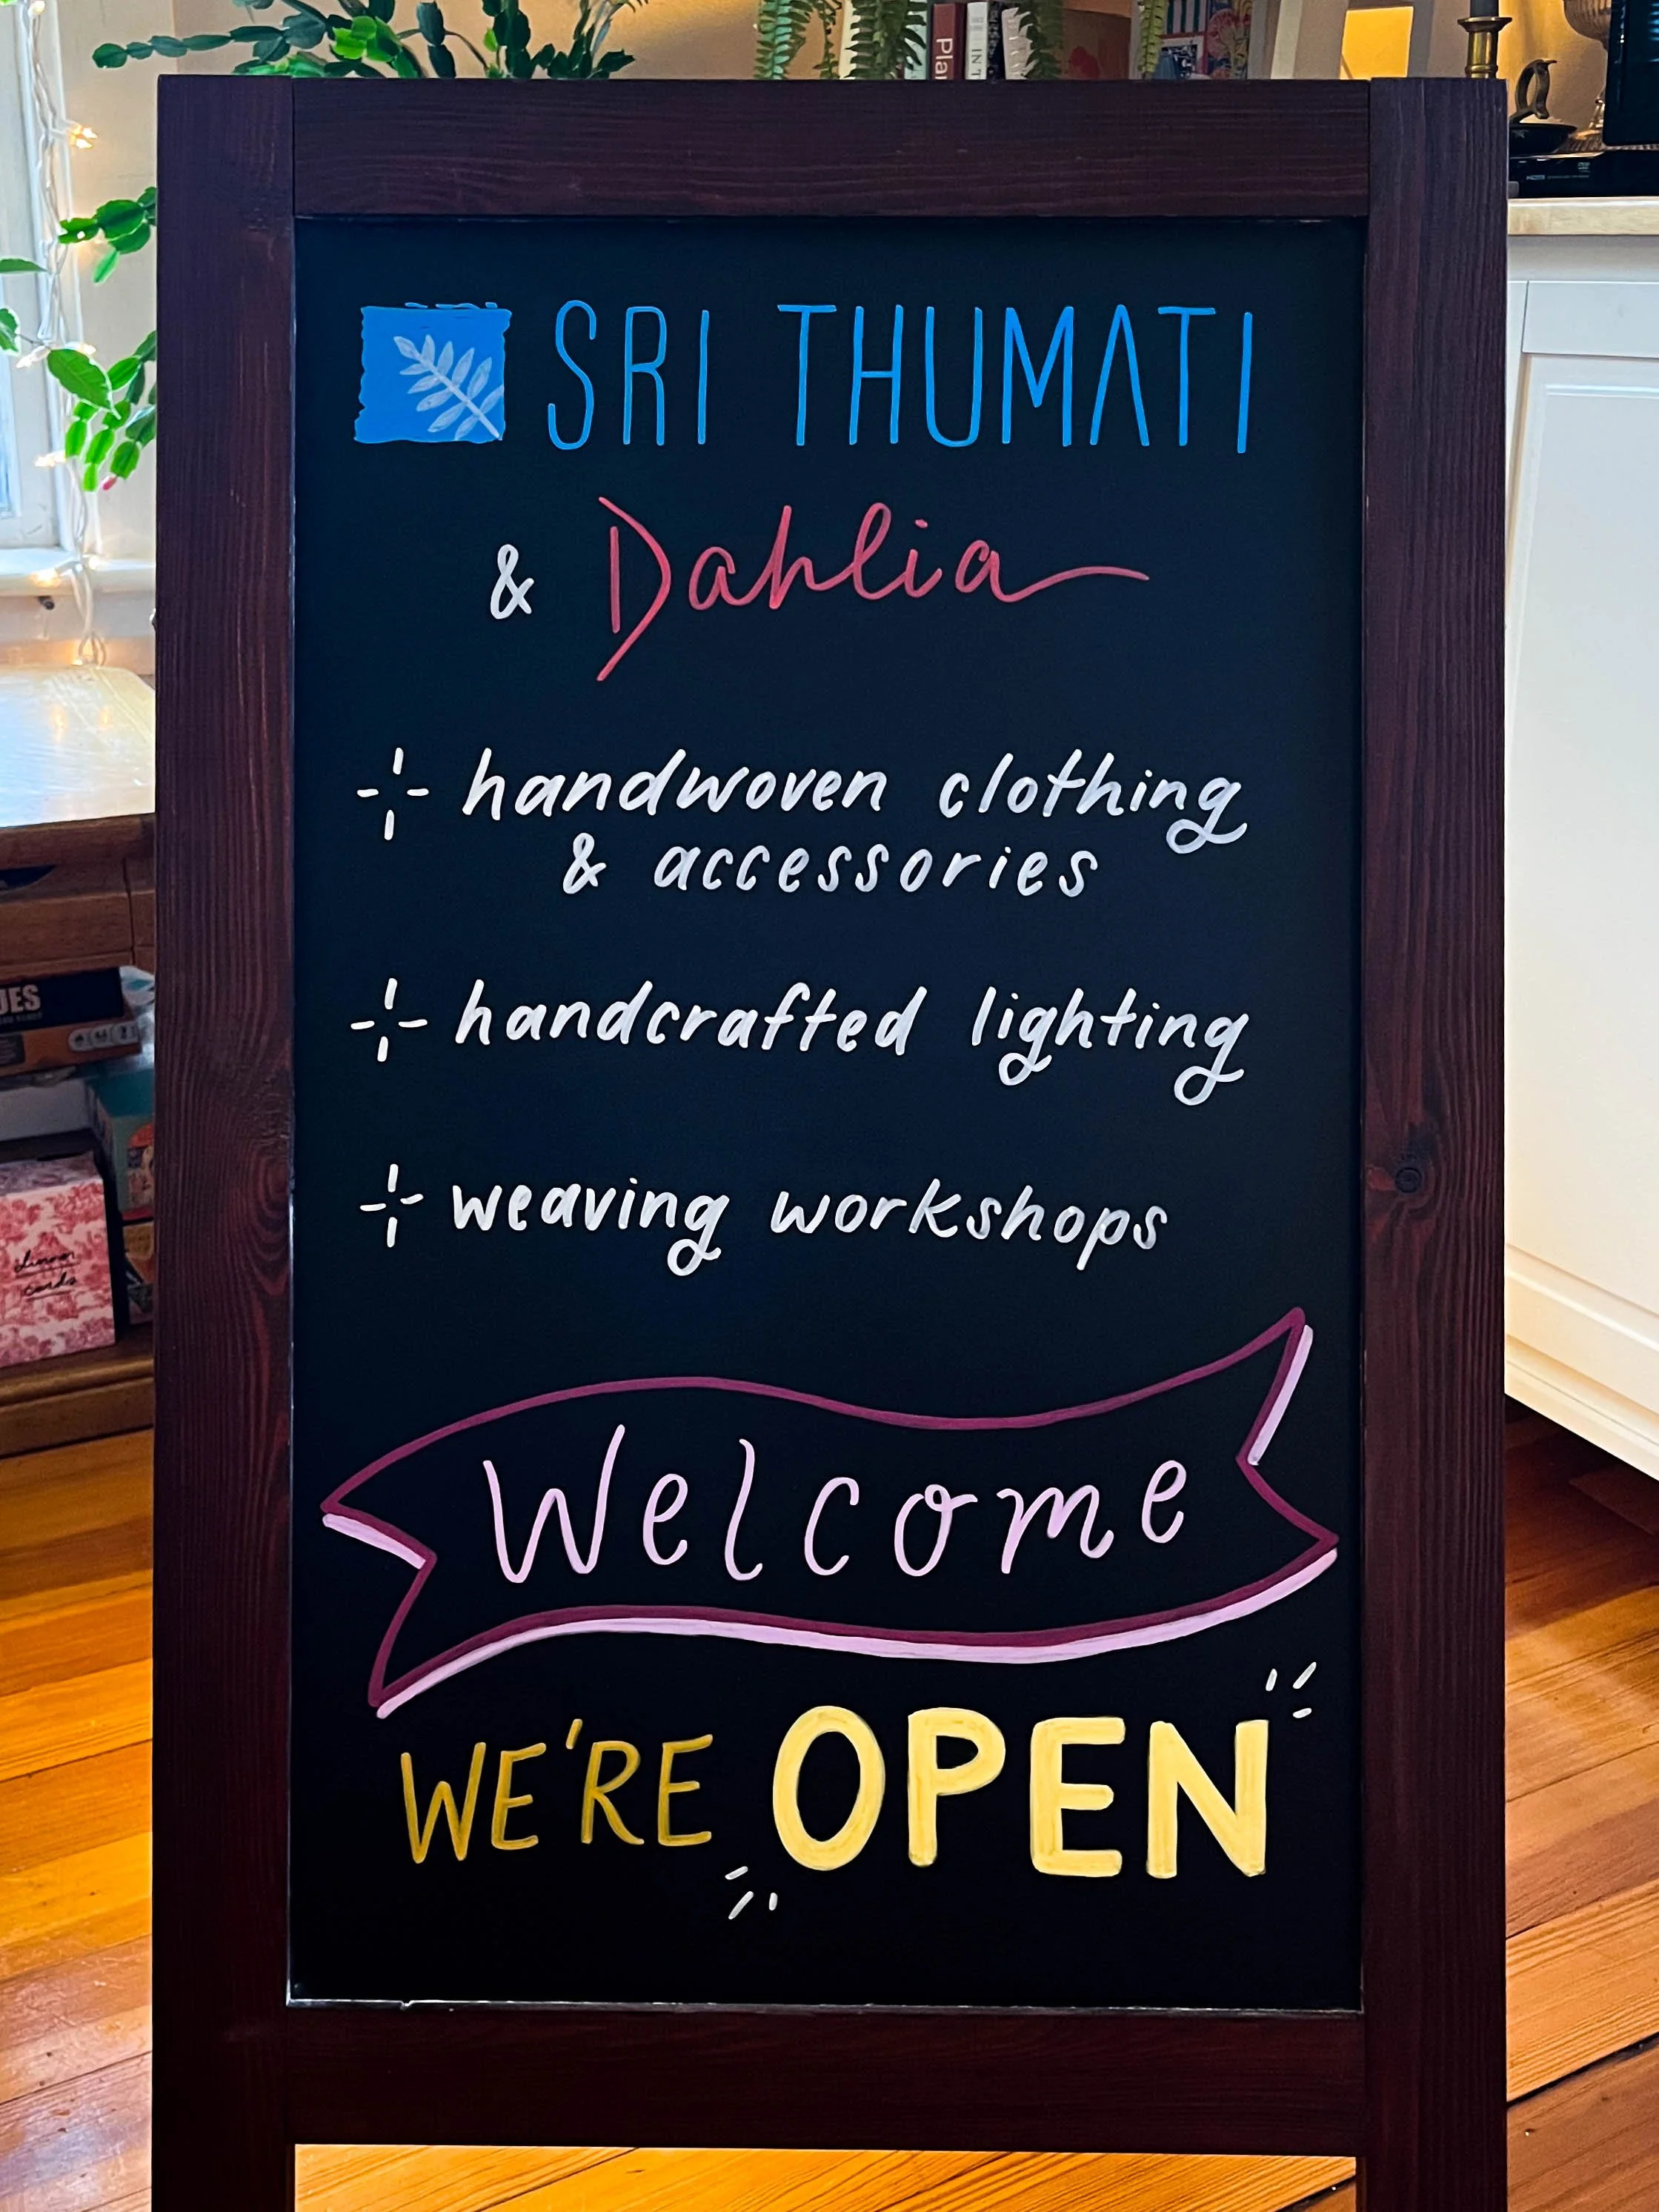 SRI THUMATI
& Dahlia
handwoven clothing
& accessories
handcrafted lighting
weaving workshops
Welcome
WE'RE OPEN
dinner
cards